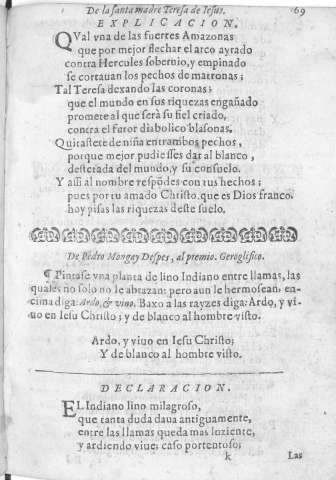 De la santa madre Teresa de Iesus. 69
EXPLICACION.
QVal vna de las fuertes Amazonas
que por mejor flechar el arco ayrado
contra Hercules soberuio, y empinado
se cortauan los pechos de matronas;
Tal Teresa dexando las coronas;
que el mundo en sus riquezas engañado
promete al que serà su fiel criado,
contra el furor diabolico blasonas.
Quitastete de niña entrambos pechos,
porque mejor pudiesses dar al blanco,
desterada del mundo, y su consuelo.
Y assi al nombre respõdes con tus hechos;
pues por tu amado Christo, que es Dios franco,
hoy pisas las riquezas deste suelo.
De Pedro Mongay Despes, al premio. Geroglifico.
¶ Pintase vna planta de lino Indiano entre llamas, las
quales no solo no le abrazan: pero aun le hermosean: en-
cima diga: Ardo, & viuo. Baxo a las rayzes diga: Ardo, y vi-
uo en Iesu Christo; y de blanco al hombre visto.
Ardo, y viuo en Iesu Christo;
Y de blanco al hombre visto.
DECLARACION.
EL Indiano lino milagroso,
que tanta duda daua antiguamente,
entre las llamas queda mas luziente,
y ardiendo viue; caso portentoso;
k Las